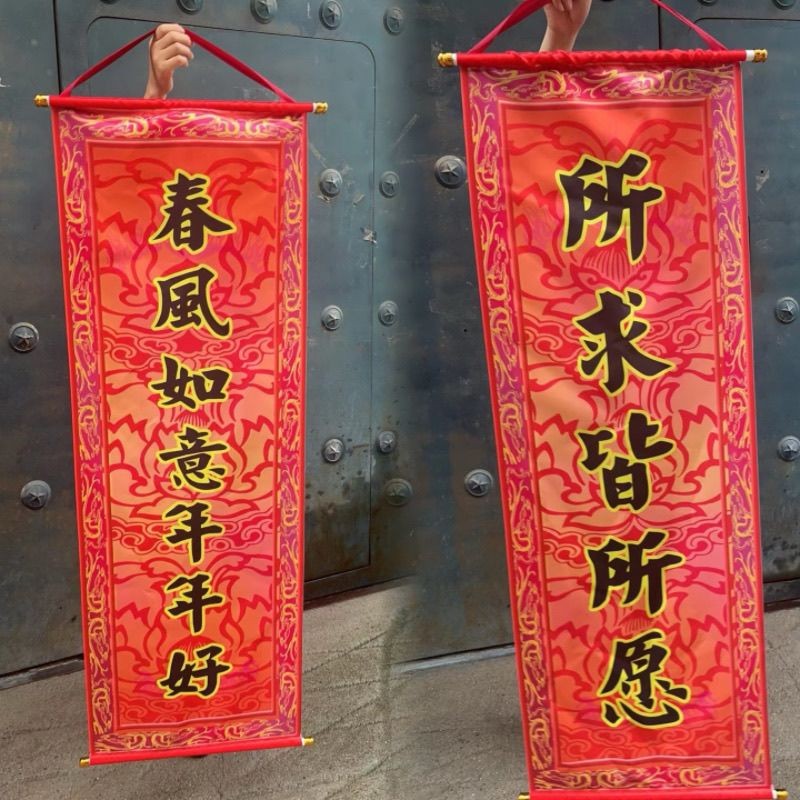 春風如意年年好
所求皆所愿